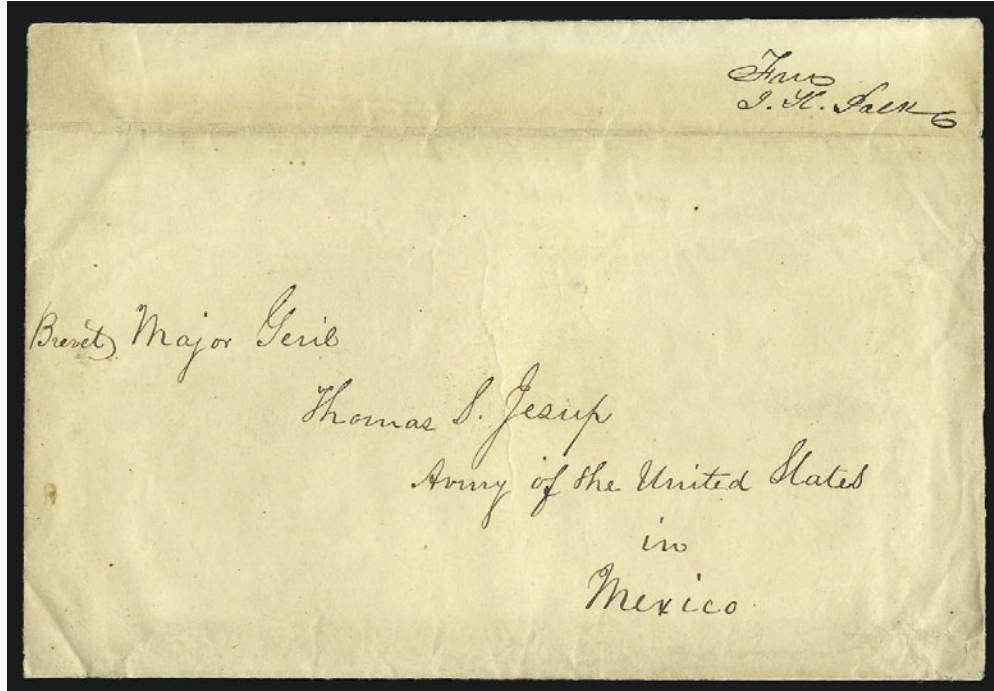 Free
J. K. Polk
Brevet Major Genl
Thomas S. Jesup
Army of the United States
in
Mexico